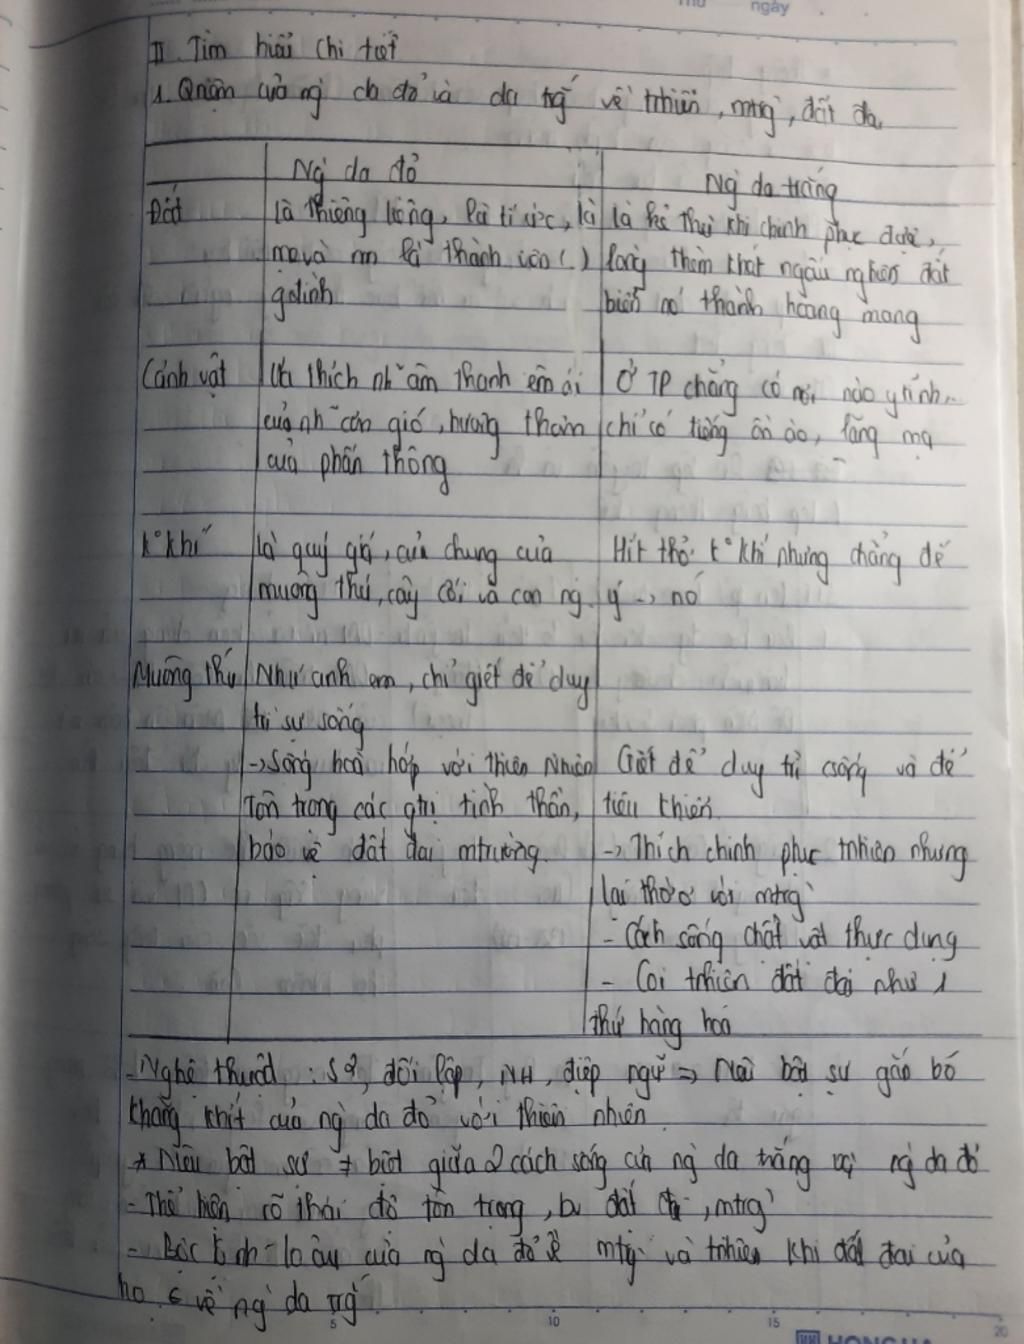 ngày
II. Tìm hiểu chi tiết
1. Qniệm của ng' da đỏ và da trắng về tnhiên, mtrg', đất đai
Ng' da đỏ
Ng' da trắng
Đất
là thiêng liêng, là kí ức, là
mẹ và em là thành viên (.)
gđình
là kẻ thù khi chinh phục được,
lòng thèm khát ngấu nghiến đất
biến nó thành hoang mạng
Cảnh vật
Ưa thích nh~ âm thanh êm ái
của nh~ cơn gió, hương thơm
của phấn thông
Ở TP chẳng có nơi nào y tĩnh
chỉ có tiếng ồn ào, lăng mạ
k° khí
là quý giá, của chung của
muông thú, cây cối và con ng.
Hít thở k° khí nhưng chẳng để
ý -> nó
Muông thú
Như anh em, chỉ giết để duy
trì sự sống
-> Sống hoà hợp với thiên nhiên
Tôn trọng các gtrị tinh thần,
bảo vệ đất đai mtrường.
Giết để duy trì csống và để
tiêu khiển.
-> Thích chinh phục tnhiên nhưng
lại thờ ơ với mtrg'
- Cách sống chật vật thực dụng
- Coi tnhiên đất đai như 1
thứ hàng hoá
- Nghệ thuật : S², đối lập, NH, điệp ngữ => Nổi bật sự gắn bó
khăng khít của ng' da đỏ với thiên nhiên
* Nêu bật sự ≠ biệt giữa 2 cách sống của ng' da trắng và ng' da đỏ
- Thể hiện rõ thái độ tôn trọng, bv đất đai, mtrg'
- Bộc lộ nh~ lo âu của ng' da đỏ về mtrg' và tnhiên khi đất đai của
họ về ng' da trắng
5 10 15 20
HONG HA